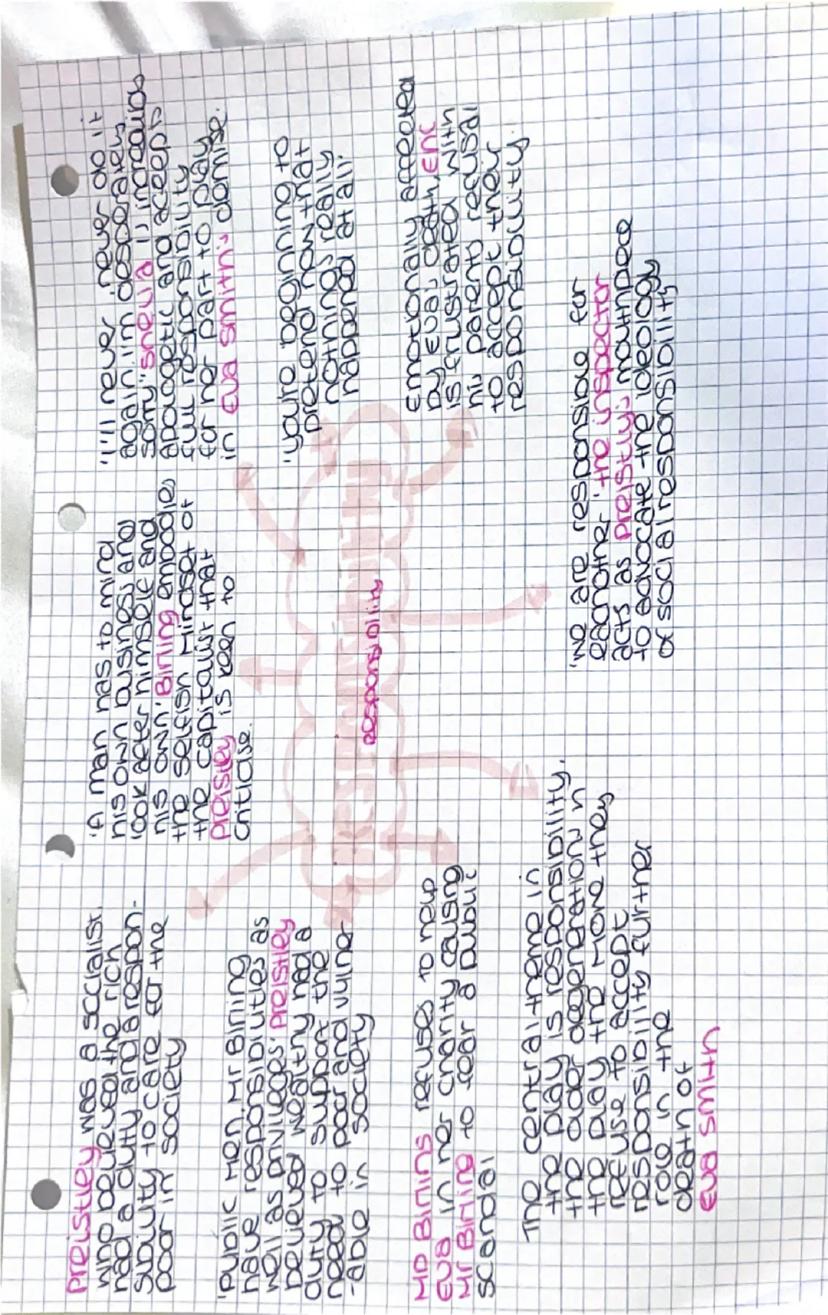 Preistley was a socialist.
who believed the rich
had a duty and a respon-
sibility to care for the
poor in society
'Public men, Mr Birling
have responsibilities as
well as privileges' Preistley
believed wealthy had a
duty to support the
need to poor and vulner
-able in society
MD Birlins refuses to help
Eva in her charity causing
Mr Birling to fear a public
scandal
The central theme in
the play is responsibility.
the older degeneration in
the play the more they
refuse to accept
responsibility further
role in the
death of
Eva Smith
'A man has to mind
his own business and
look after himself and
his own' Birling embodies
the selfish mindset of
the capitalist that
Preistley is keen to
criticise.
responsibility
'I'll never, never do it
again im desperately
sorry' Sheila is incredibly
apologetic and accepts
full responsibility
for her part to play
in Eva Smith's demise.
'you're beginning to
pretend now that
nothing's really
happened at all'
emotionally affected
by Eva's death, Eric
is frustrated with
his parents refusal
to accept their
responsibility.
'we are responsible for
eachother' the inspector
acts as Preistley's mouthpiece
to advocate the ideology
of social responsibility